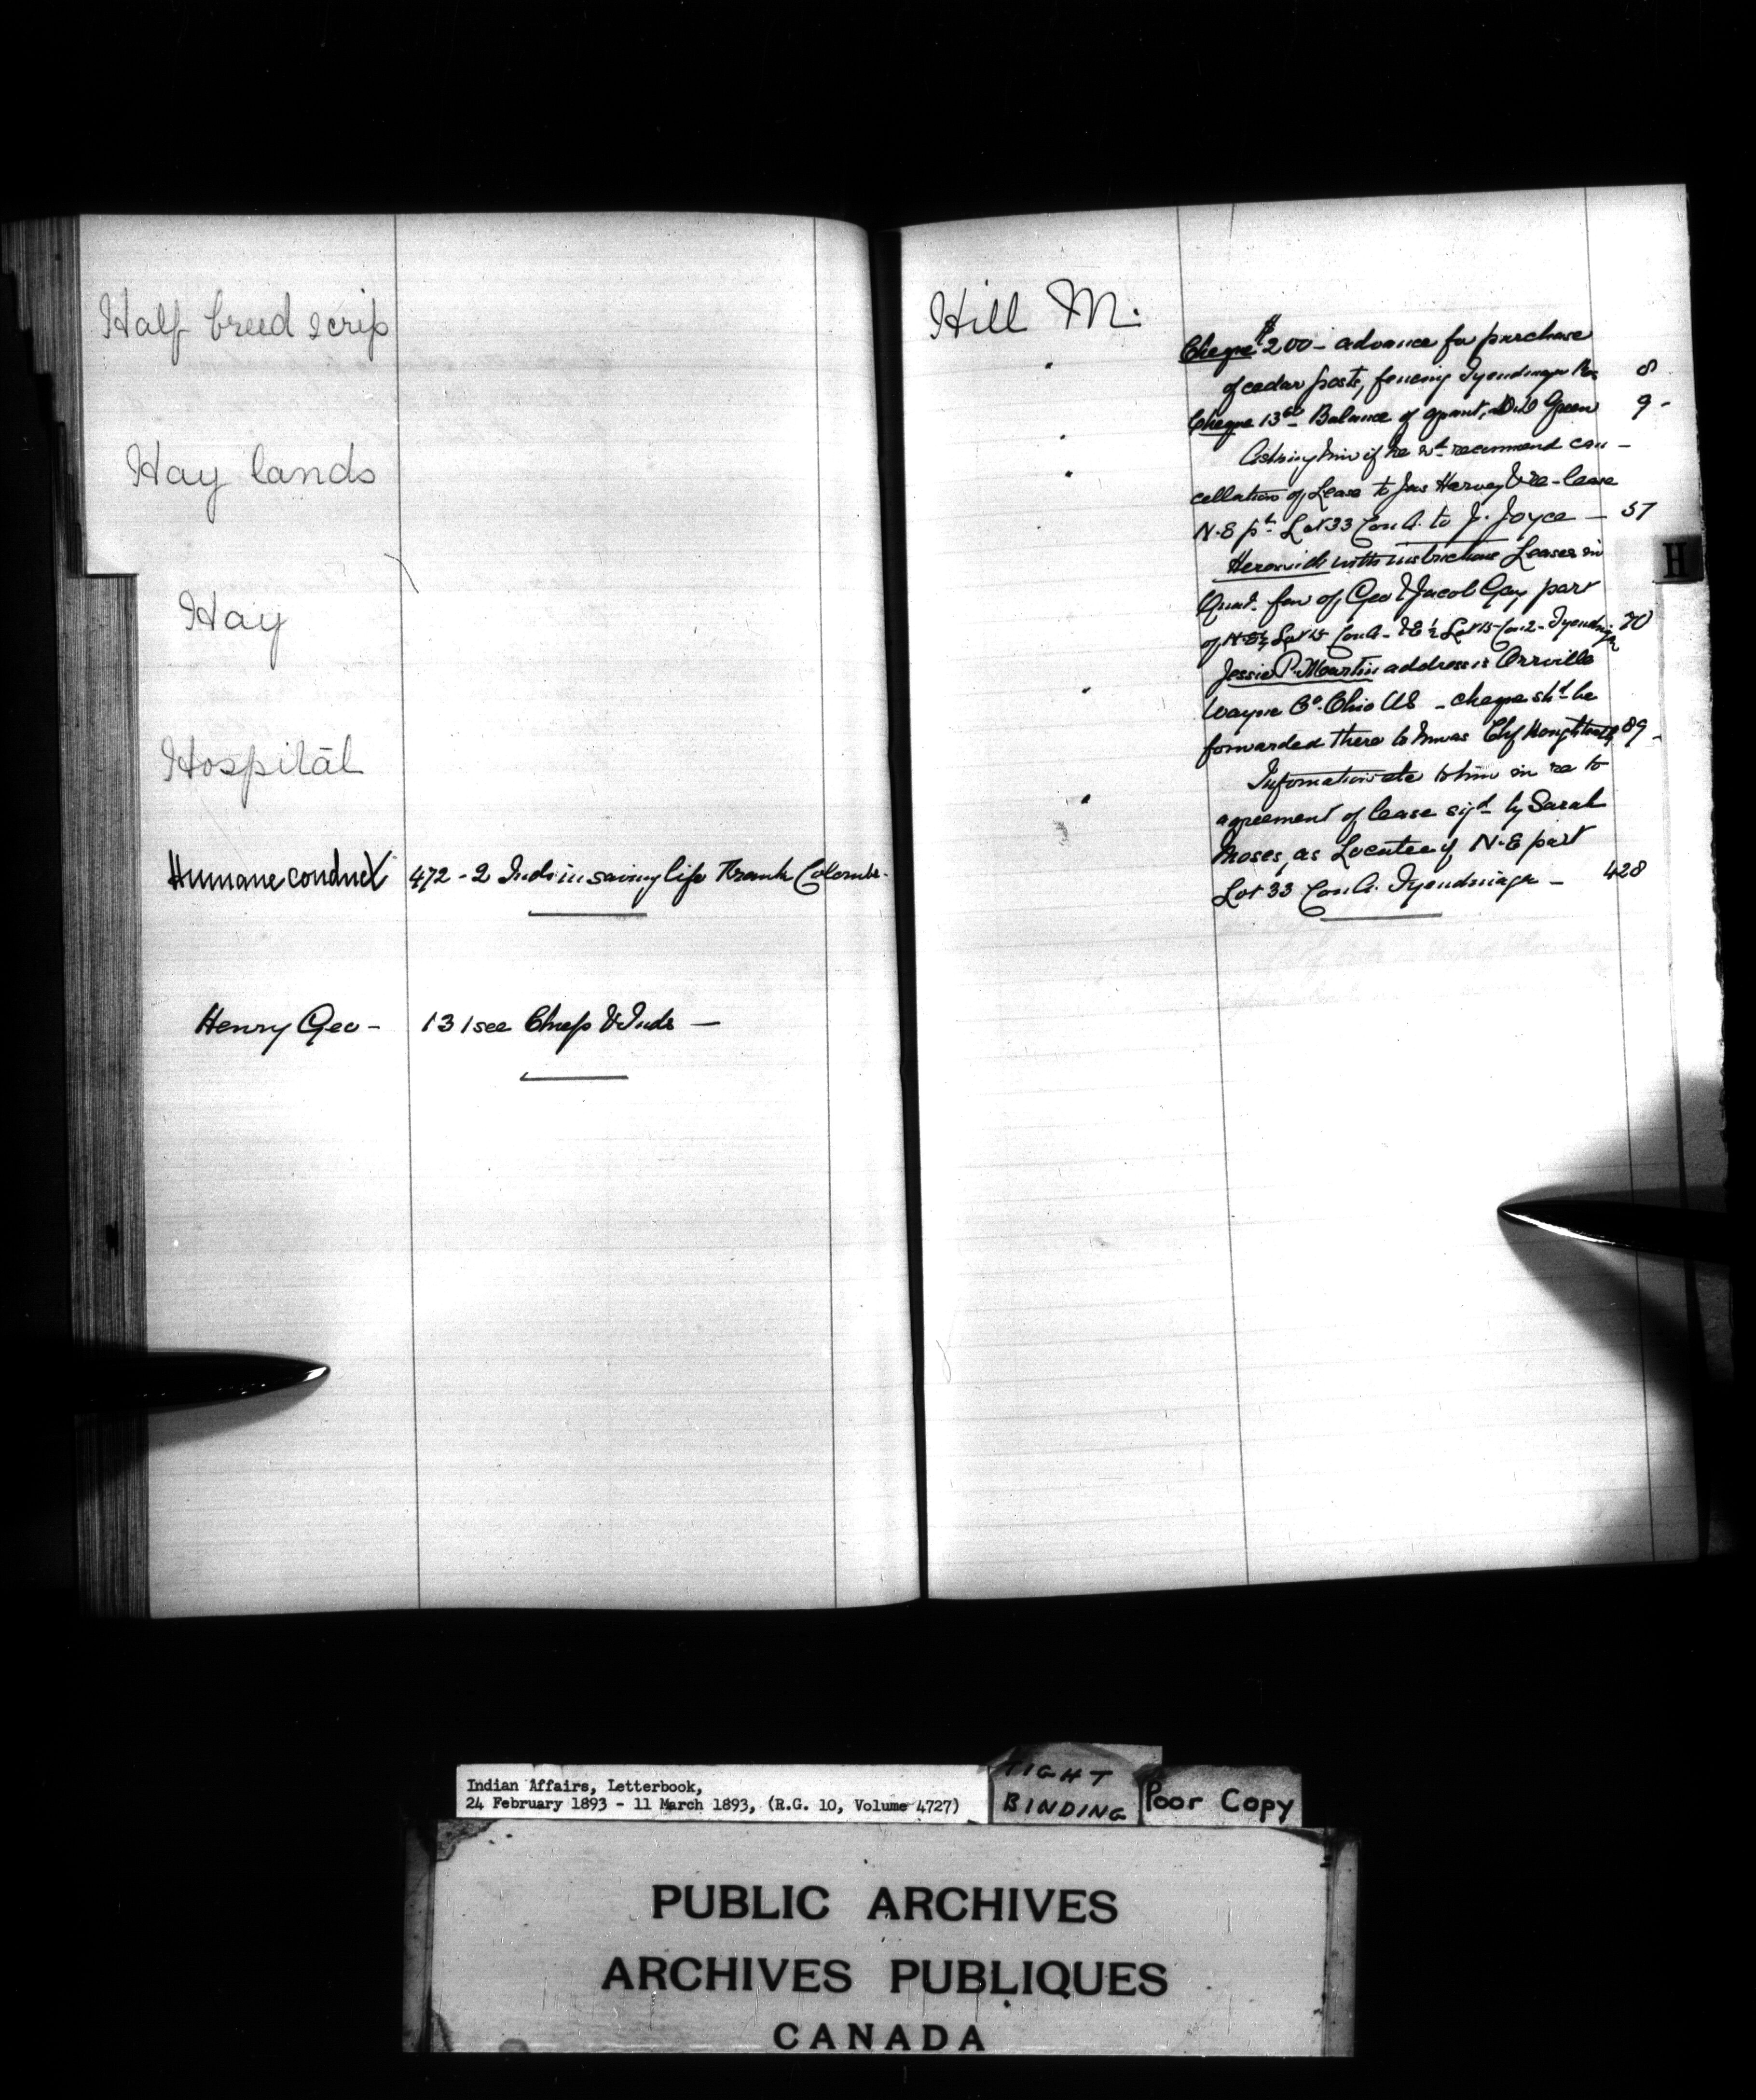 Half breed scrip
Hay lands
Hay
Hospital
Humane conduct 472 - 2 Inds in saving life Frank Colombe -
Henry Geo - 131 see Chiefs & Inds -
Hill M.
Cheque $200 - advance for purchase
of cedar posts, fencing Tyendinaga Res 8
Cheque 13 Balance of grant, Green 9 -
Asking him if he wd recommend can -
cellation of Lease to Jas Harvey & re-lease
N.E pt Lot 33 Con A. to J. Joyce - 57
Herewith with instructions Leases in
Quad. fav of Geo & Jacob Gay part
of N.E½ Lot 15 Con A - & E ½ Lot 15 Con 2 - Tyendinaga 70
Jessie P. Martin address is Orrville
Wayne Co. Ohio US - cheque shd be
forwarded there to him as 89 -
Information etc to him in re to
agreement of lease sigd by Sarah
Moses, as Locatee of N.E part
Lot 33 Con A. Tyendinaga - 428
H
Indian Affairs, Letterbook,
24 February 1893 - 11 March 1893, (R.G. 10, Volume 4727)
TIGHT
BINDING
Poor Copy
PUBLIC ARCHIVES
ARCHIVES PUBLIQUES
CANADA